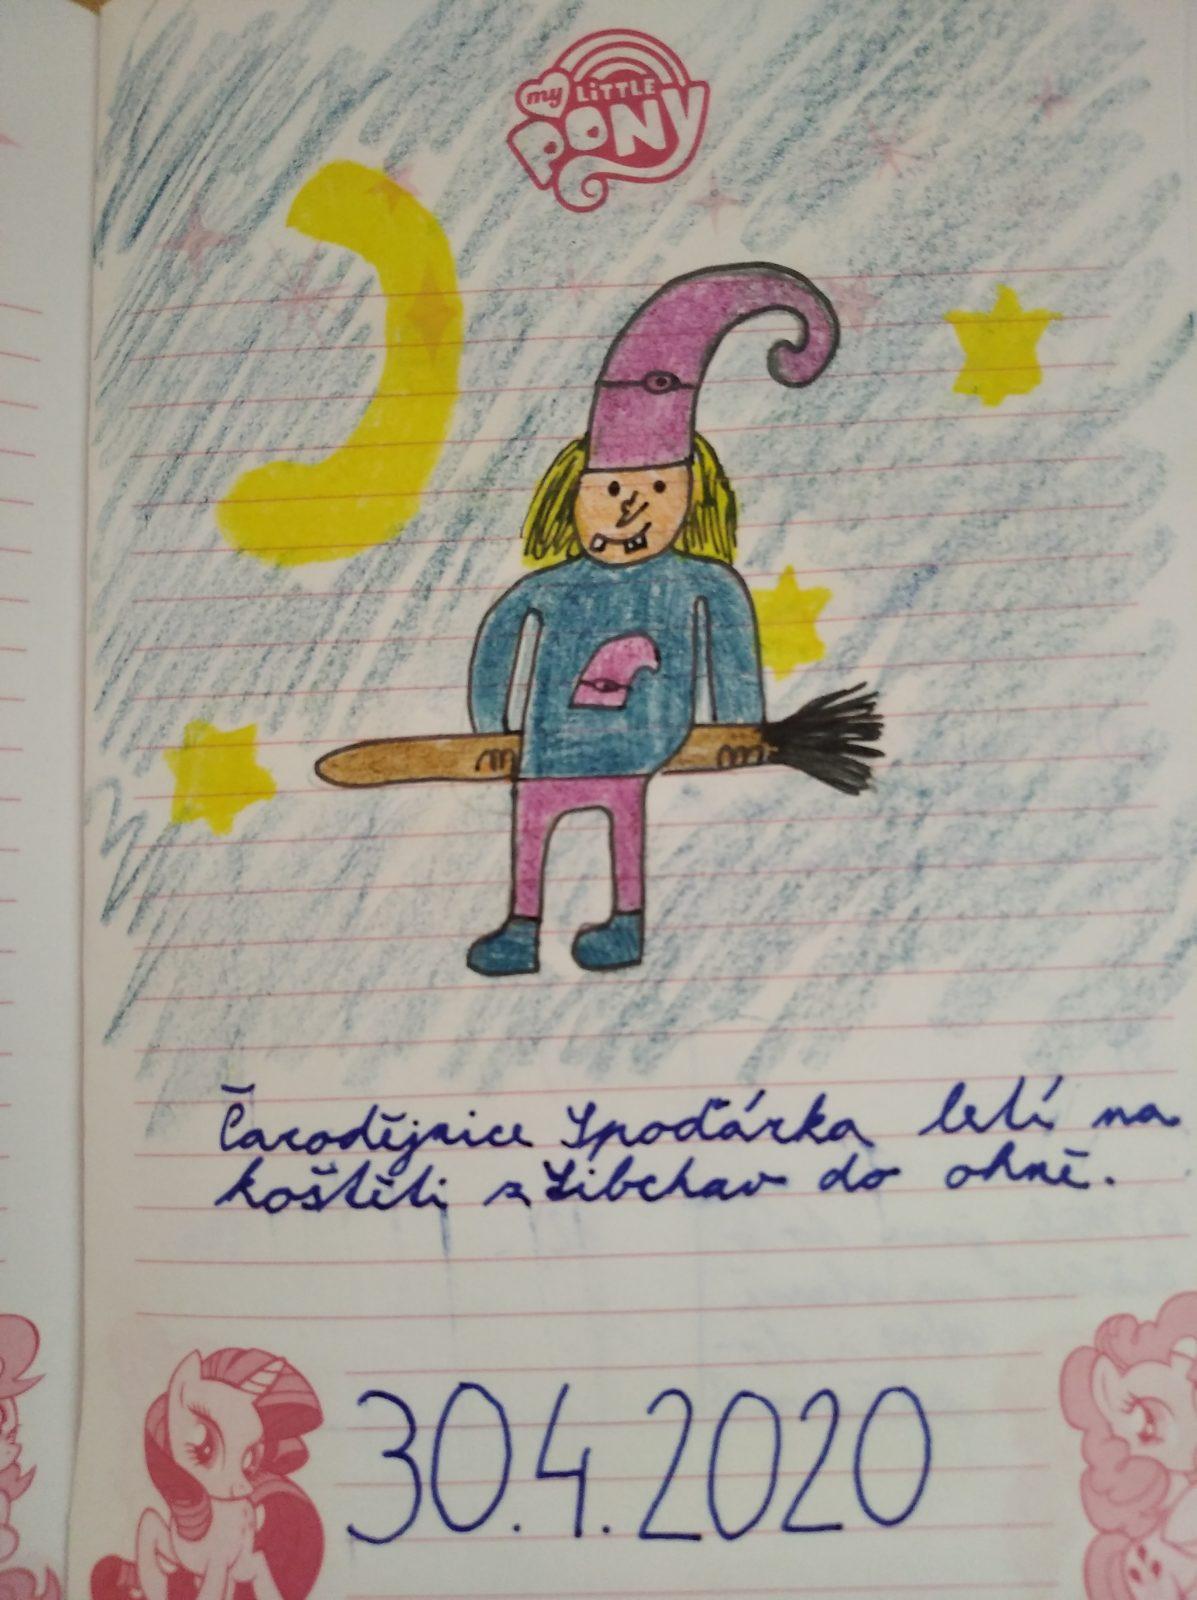 my LITTLE
PONY
Čarodějnice Spoďárka letí na
koštěti z Libchav do ohně.
30.4.2020